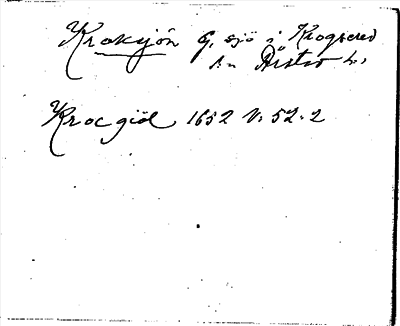 Kroksjön G, sjö i Krogsered
sn Årstad h.,
Krocgiöl 1652 V: 52.2